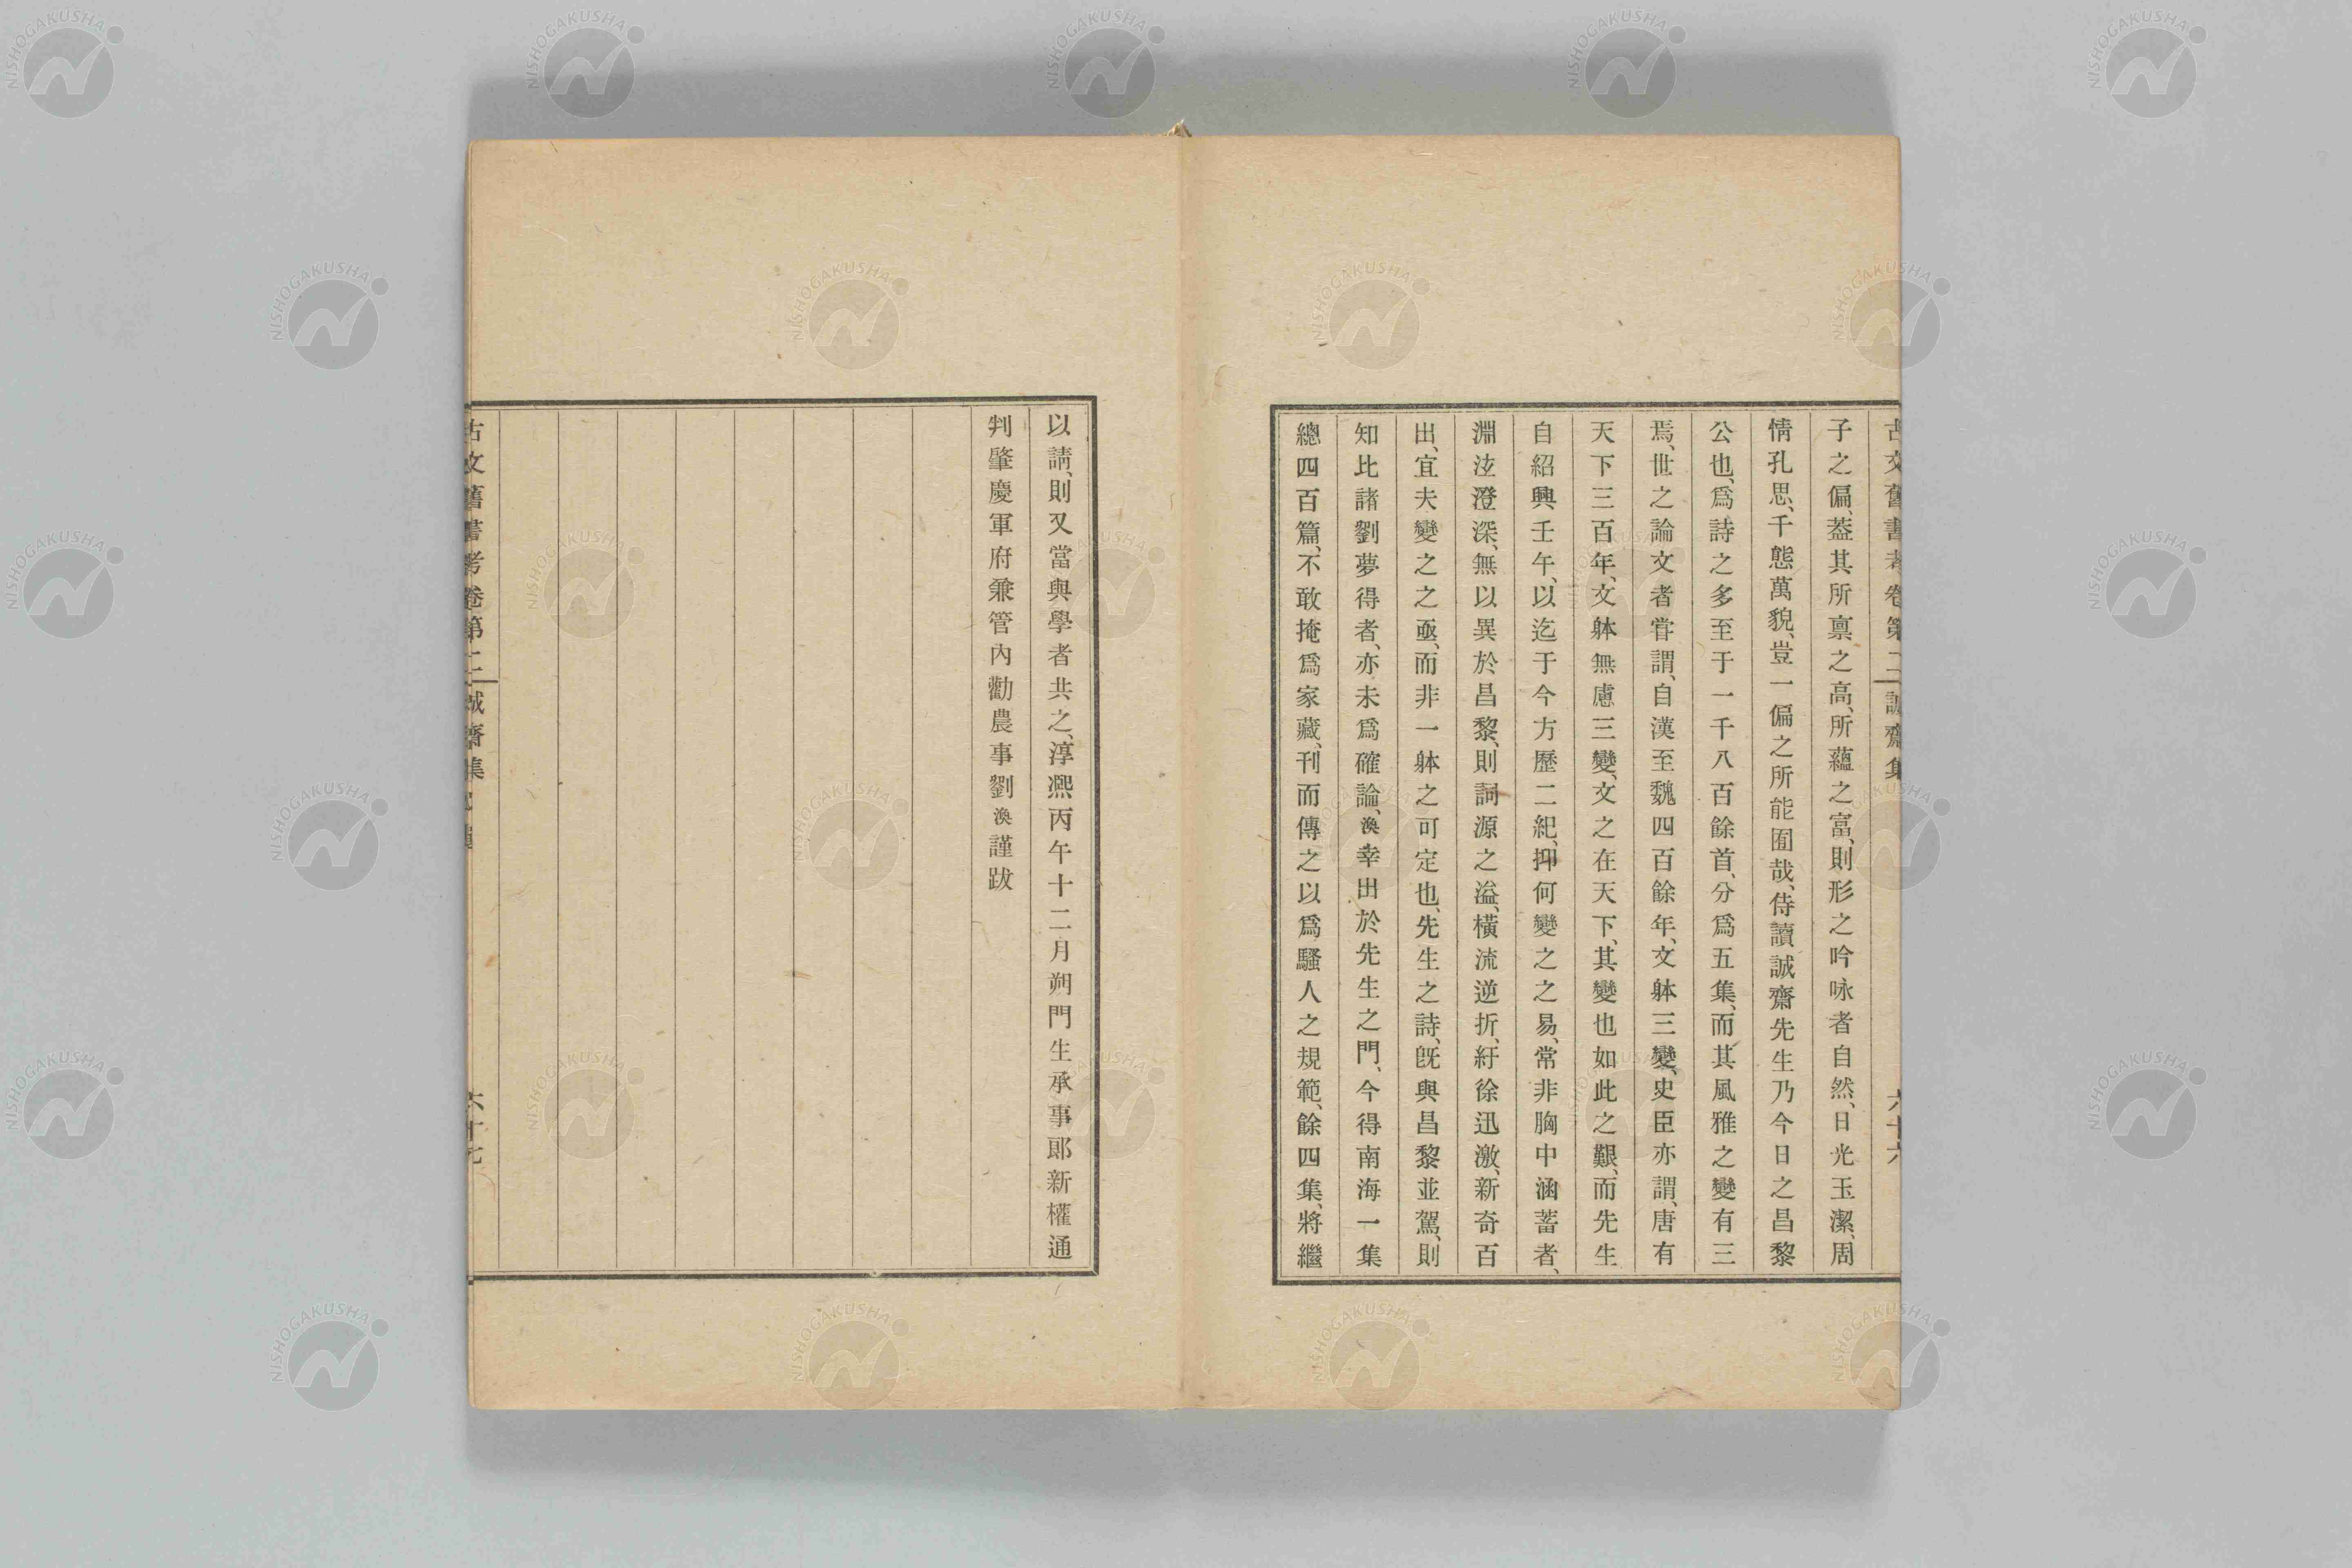 古文舊書考卷第二 誠齋集 六十六
子之偏、葢其所禀之高、所蘊之富、則形之吟咏者自然、日光玉潔、周
情孔思、千態萬貌、豈一偏之所能囿哉、侍讀誠齋先生乃今日之昌黎
公也、爲詩之多至于一千八百餘首、分爲五集、而其風雅之變有三
焉、世之論文者甞謂、自漢至魏四百餘年、文躰三變、史臣亦謂、唐有
天下三百年、文躰無慮三變、文之在天下、其變也如此之艱、而先生
自紹興壬午、以迄于今方歷二紀、抑何變之之易、常非胸中涵蓄者、
淵泫澄深、無以異於昌黎、則詞源之溢、橫流逆折、紆徐迅激、新奇百
出、宜夫變之之亟、而非一躰之可定也、先生之詩、旣與昌黎並駕、則
知比諸劉夢得者、亦未爲確論、渙幸出於先生之門、今得南海一集
總四百篇、不敢掩爲家藏、刊而傳之以爲騷人之規範、餘四集、將繼
以請、則又當與學者共之、淳凞丙午十二月朔門生承事郎新權通
判肇慶軍府兼管內勸農事劉渙謹跋
古文舊書考卷第二 誠齋集 六十七
NISHOGAKUSHA